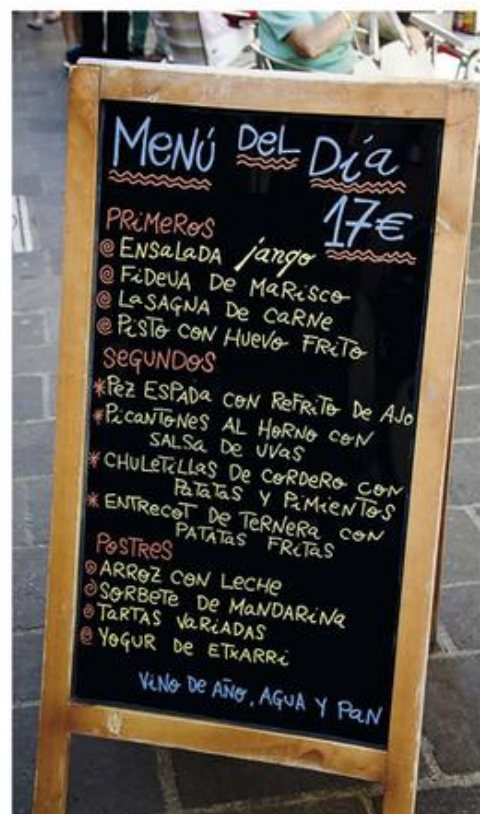 MENÚ DEL Día
17€
PRiMeROS
ENSALADA jango
FiDEUA DE MaRiSCO
LASAGNA DE CARNE
PiSTO CON HUEVO FRiTO
SEGUNDOS
*PEZ ESPADA CON REFRiTO DE AJO
*PiCANTONES AL HORNO CON
SALSA DE UVAS
*CHULETiLLAS DE CORDERO CON
PATATAS Y PiMiENTOS
*ENTRECOT DE TERNERA CON
PATATAS FRiTAS
POSTRES
ARROZ CON LECHE
SORBETE DE MANDARiNA
TARTAS VARiADAS
YOGUR DE ETXARRi
ViNO DE AÑO, AGUA Y PaN